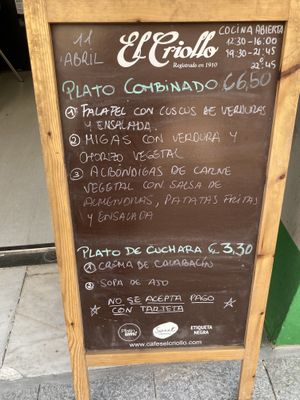 11
ABRIL
El Criollo
Registrado en 1910
COCINA ABIERTA
12:30 - 16:00
19:30 - 21:45
22:45
PLATO COMBINADO €6,50
1 FALAFEL CON CUSCUS DE VERDURAS
Y ENSALADA.
2 MIGAS CON VERDURA Y
CHORIZO VEGETAL
3 ALBÓNDIGAS DE CARNE
VEGETAL CON SALSA DE
ALMENDRAS, PATATAS FRITAS
Y ENSALADA
PLATO DE CUCHARA €3,30
1 CREMA DE CALABACÍN
2 SOPA DE AJO
NO SE ACEPTA PAGO
CON TARJETA
ETIQUETA
NEGRA
www.cafeselcriollo.com